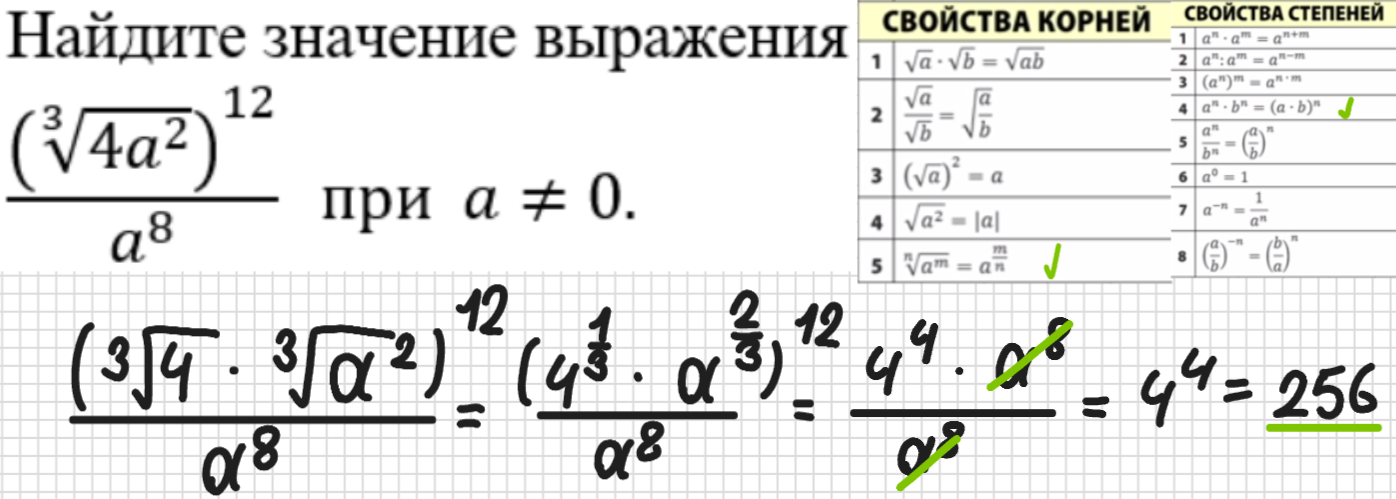 Найдите значение выражения
(∛(4a²))¹² / a⁸ при a ≠ 0.
СВОЙСТВА КОРНЕЙ
1 √a · √b = √ab
2 √a / √b = √(a/b)
3 (√a)² = a
4 √a² = |a|
5 ⁿ√aᵐ = a^(m/n) ✓
СВОЙСТВА СТЕПЕНЕЙ
1 aⁿ · aᵐ = aⁿ⁺ᵐ
2 aⁿ : aᵐ = aⁿ⁻ᵐ
3 (aⁿ)ᵐ = aⁿ˙ᵐ
4 aⁿ · bⁿ = (a · b)ⁿ ✓
5 aⁿ / bⁿ = (a/b)ⁿ
6 a⁰ = 1
7 a⁻ⁿ = 1 / aⁿ
8 (a/b)⁻ⁿ = (b/a)ⁿ
(∛4 · ∛a²)¹² / a⁸ = (4^(1/3) · a^(2/3))¹² / a⁸ = 4⁴ · a⁸ / a⁸ = 4⁴ = 256